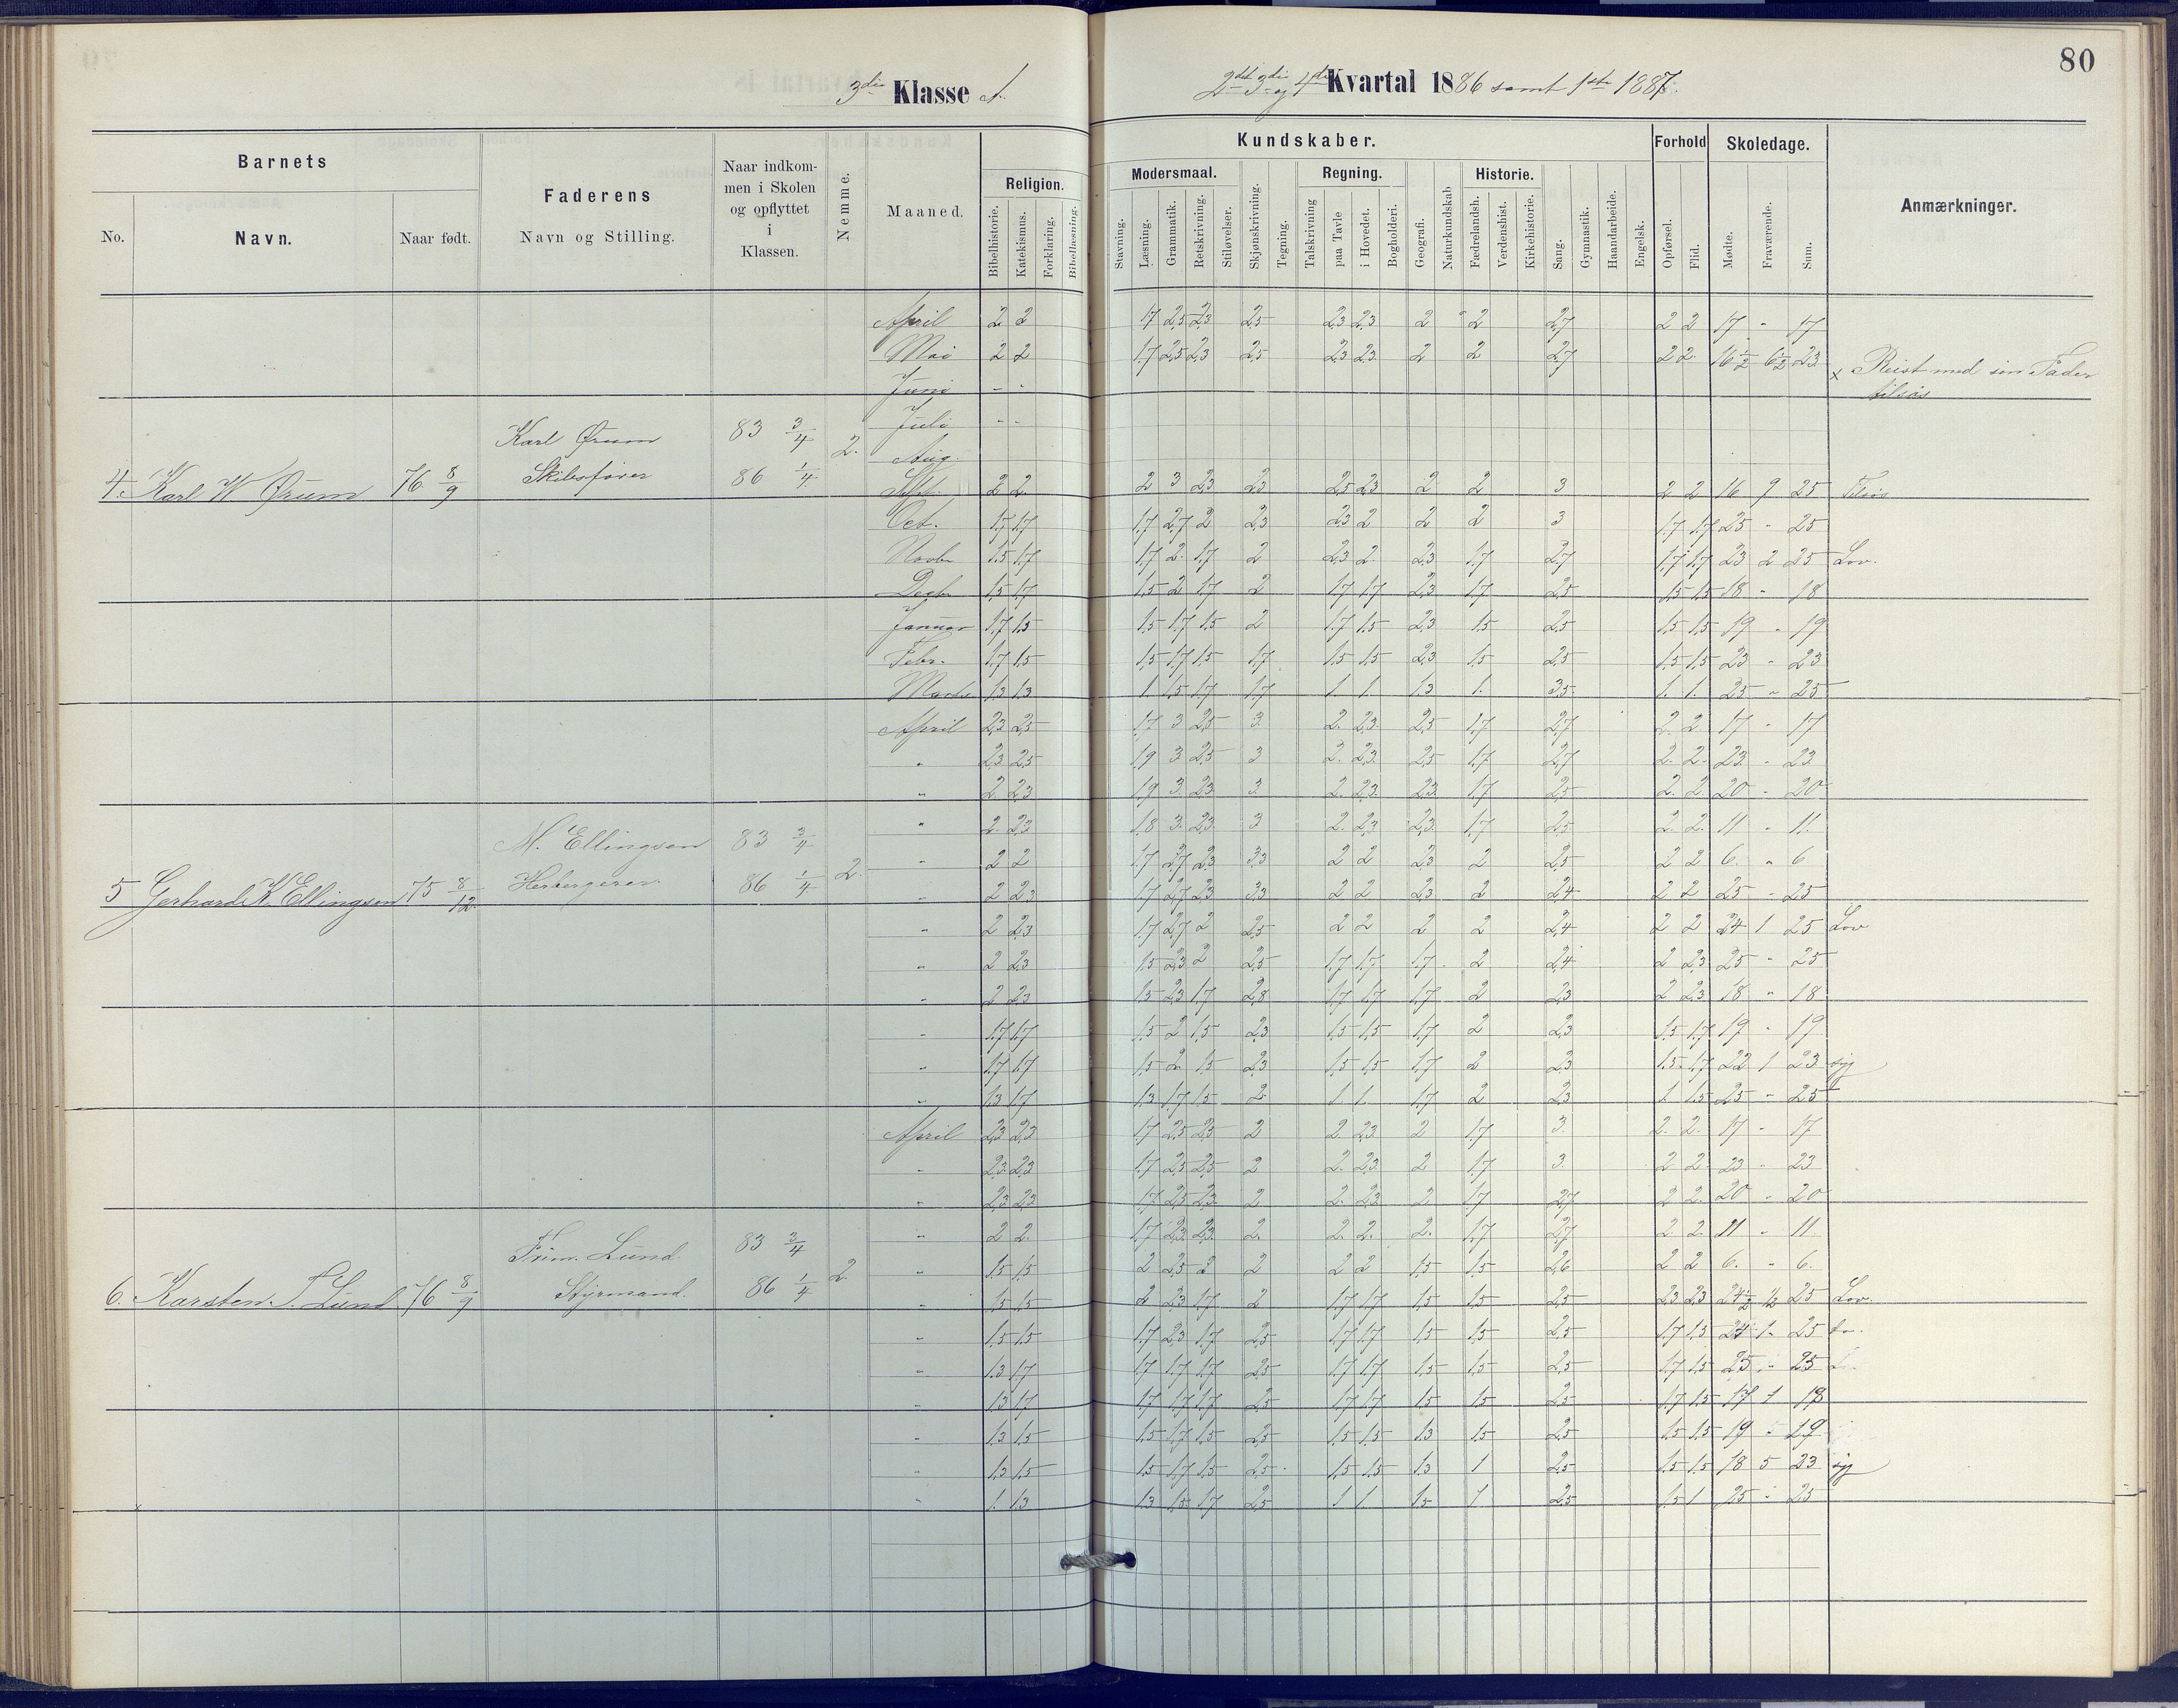 80
3die Klasse A.
2det 3die og 4de Kvartal 1886 samt 1ste 1887.
Barnets
No.
Navn.
Naar født.
Faderens
Navn og Stilling.
Naar indkom-
men i Skolen
og opflyttet
i
Klassen.
Nemme.
Maaned.
Kundskaber.
Religion.
Bibelhistorie.
Katekismus.
Forklaring.
Bibellæsning.
Modersmaal.
Stavning.
Læsning.
Grammatik.
Retskrivning.
Stiløvelser.
Skjønskrivning.
Tegning.
Regning.
Talskrivning
paa Tavle
i Hovedet.
Bogholderi.
Geografi.
Naturkundskab
Historie.
Fædrelandsh.
Verdenshist.
Kirkehistorie.
Sang.
Gymnastik.
Haandarbeide.
Engelsk.
Forhold
Opførsel.
Flid.
Skoledage.
Mødte.
Fraværende.
Sum.
Anmærkninger.
April 2 2 1,7 2,5 2,3 2,5 2,3 2,3 2 2 2,7 2 2 17 - 17
Mai 2 2 1,7 2,5 2,3 2,5 2,3 2,3 2 2 2,7 2 2 16 1/2 6 1/2 23 x Reist med sin Fader
Juni - - tilsøs
Karl Ørum 83 3/4 Juli - -
Aug.
4. Karl W Ørum 76 8/9 Skibsfører 86 1/4 2. Sept. 2 2 2 3 2,3 2,3 2,5 2,3 2 2 3 2 2 16 9 25 Tilsøs
Oct. 1,7 1,7 1,7 2,7 2 2,3 2,3 2 2 2 3 1,7 1,7 25 - 25
Novbr 1,5 1,7 1,7 2 1,7 2 2,3 2 2,3 1,7 2,7 1,7 1,7 23 2 25 Lov.
Decbr 1,5 1,7 1,5 2 1,7 2 1,7 1,7 2,3 1,7 2,5 1,5 1,5 18 - 18
Januar 1,7 1,5 1,5 1,7 1,5 2 1,7 1,5 2,3 1,5 2,5 1,5 1,5 19 - 19
Febr. 1,7 1,5 1,5 1,7 1,5 1,7 1,5 1,5 2,3 1,5 2,5 1,5 1,5 23 - 23
Marts 1,3 1,3 1 1,5 1,7 1,7 1 1 1,3 1 3,5 1 1 25 - 25
April 2,3 2,5 1,7 3 2,5 3 2 2,3 2,5 1,7 2,7 2 2 17 - 17
" 2,3 2,5 1,9 3 2,5 3 2 2,3 2,5 1,7 2,7 2 2 23 - 23
" 2 2,3 1,9 3 2,3 3 2 2,3 2,3 1,7 2,5 2 2 20 - 20
M. Ellingsen 83 3/4 " 2 2,3 1,8 3 2,3 3 2 2,3 2,3 1,7 2,5 2 2 11 - 11
" 2 2 1,7 2,7 2,3 3,3 2 2 2,3 2 2,5 2 2 6 " 6
5 Gerhard K. Ellingsen 75 8/12 Herbergerer 86 1/4 2. " 2 2,3 1,7 2,7 2,3 3,3 2 2 2,3 2 2,4 2 2 25 - 25
" 2 2,3 1,7 2,7 2 2,5 2 2 2 2 2,4 2 2 24 1 25 Lov
" 2 2,3 1,5 2,3 2 2,5 1,7 1,7 1,7 2 2,4 2 2,3 25 - 25
" 2 2,3 1,5 2,3 1,7 2,8 1,7 1,7 1,7 2 2,3 2 2,3 18 " 18
" 1,7 1,7 1,5 2 1,5 2,3 1,5 1,5 1,7 2 2,3 1,5 1,7 19 - 19
" 1,7 1,7 1,5 2 1,5 2,3 1,5 1,5 1,7 2 2,3 1,5 1,7 22 1 23 syg
" 1,3 1,7 1,3 1,7 1,5 2 1 1 1,7 2 2,3 1 1,5 25 - 25
April 2,3 2,3 1,7 2,5 2,5 2 2 2,3 2 1,7 3 2 2 17 - 17
" 2,3 2,3 1,7 2,5 2,5 2 2 2,3 2 1,7 3 2 2 23 - 23
" 2,3 2,3 1,7 2,5 2,3 2 2 2,3 2 1,7 2,7 2 2 20 - 20
Frim. Lund 83 3/4 " 2 2 1,7 2,3 2,3 2 2 2 2 1,7 2,7 2 2 11 - 11
" 1,5 1,5 2 2,5 2 2 2 2 1,5 1,5 2,6 2 2 6 " 6
6. Karsten T. Lund 76 8/9 Styrmand 86 1/4 2 " 1,5 1,5 2 2,3 1,7 2 1,7 1,7 1,5 1,5 2,5 2,3 2,3 24 1/2 1/2 25 Lov.
" 1,5 1,5 1,7 2,3 1,7 2,5 1,7 1,7 1,5 1,5 2,5 1,7 1,5 24 1 25
" 1,3 1,7 1,7 1,7 1,7 2,5 1,7 1,7 1,5 1,5 2,5 1,7 1,5 25 - 25
" 1,3 1,7 1,7 1,7 1,7 2,5 1,7 1,7 1,5 1,5 2,5 1,7 1,5 17 1 18
" 1,3 1,5 1,5 1,7 1,5 2,5 1,5 1,5 1,3 1,5 2,5 1,5 1,5 19 - 19
" 1,3 1,5 1,5 1,7 1,5 2,5 1,5 1,5 1,3 1 2,5 1,5 1,5 18 5 23 syg
" 1 1,3 1,3 1,5 1,7 2,5 1 1 1,5 1 2,5 1,5 1 25 - 25